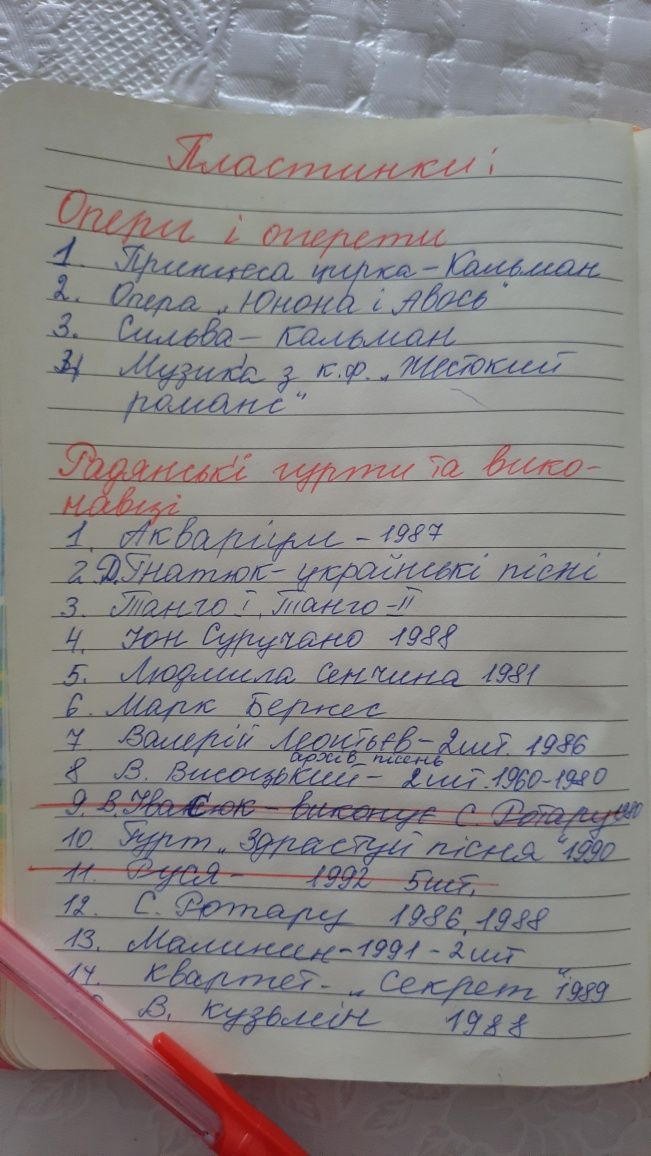 Пластинки:
Опери і оперети
1. Принцеса цирка – Кальман
2. Опера „Юнона і Авось"
3. Сильва – Кальман
4 Музика з к.ф. „Жестокий
романс"
Радянські гурти та вико-
навці
1. Акваріум – 1987
2. Д. Гнатюк – українські пісні
3. Танго I, Танго – II
4. Іон Суручано 1988
5. Людмила Сенчина 1981
6. Марк Бернес
7 Валерій Леонтьєв – 2 шт. 1986
архів пісень
8 В. Висоцький – 2 шт. 1960-1980
9. В. Івасюк – виконує С. Ротару 1980
10. Гурт „Здраствуй пісня" 1990
11. Руся – 1992 5 шт.
12. С. Ротару 1986, 1988
13. Малинин – 1991 – 2 шт
14. Квартет – „Секрет" 1989
В. Кузьмін 1988